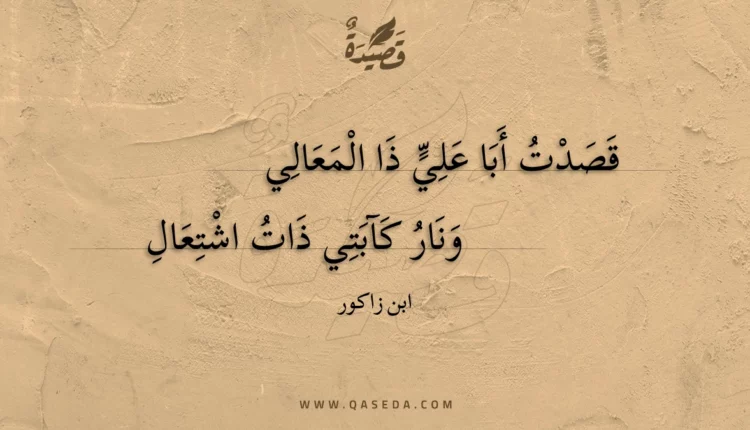 قَصِيْدَةٌ
قَصَدْتُ أَبَا عَلِيٍّ ذَا الْمَعَالِي
وَنَارُ كَآبَتِي ذَاتُ اشْتِعَالِ
ابن زاكور
WWW.QASEDA.COM